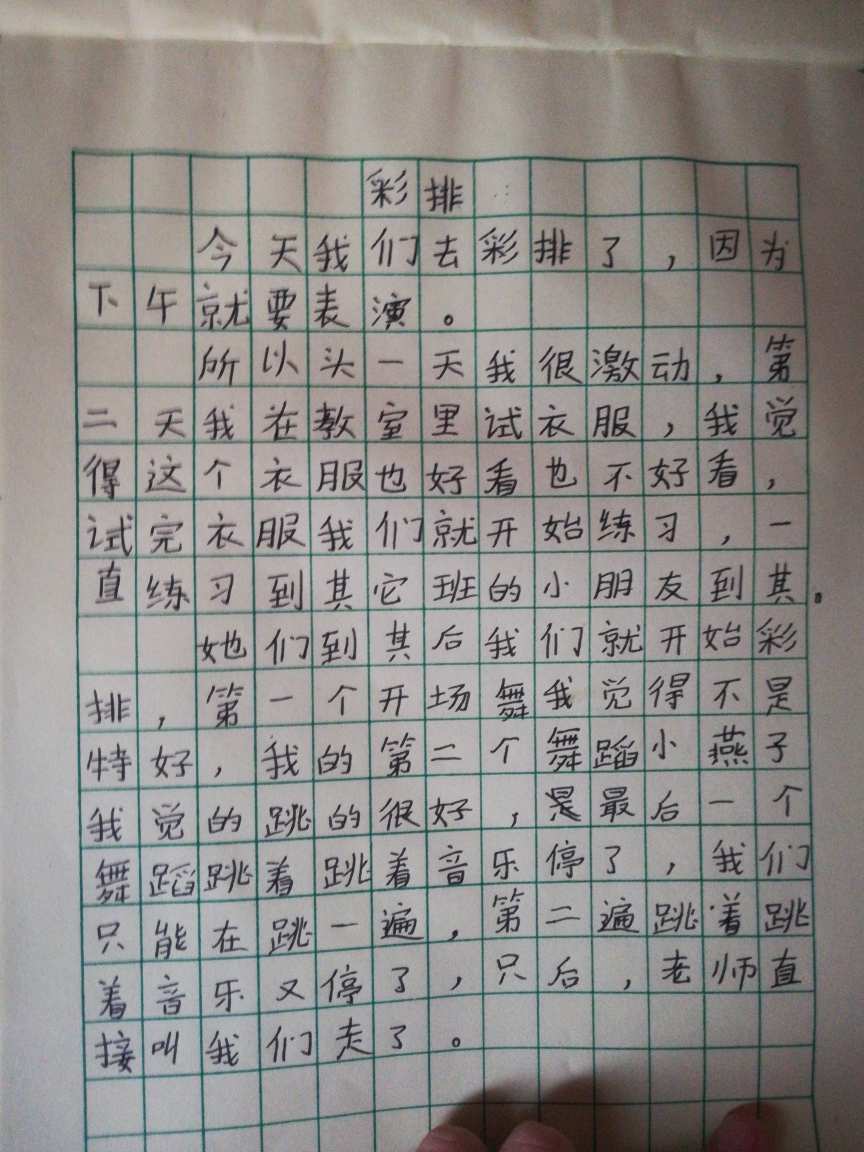 彩排
今天我们去彩排了，因为
下午就要表演。
所以头一天我很激动，第
二天我在教室里试衣服，我觉
得这个衣服也好看也不好看，
试完衣服我们就开始练习，一
直练习到其它班的小朋友到其。
她们到其后我们就开始彩
排，第一个开场舞我觉得不是
特好，我的第二个舞蹈小燕子
我觉的跳的很好，是最后一个
舞蹈跳着跳着音乐停了，我们
只能在跳一遍，第二遍跳着跳
着音乐又停了，只后，老师直
接叫我们走了。